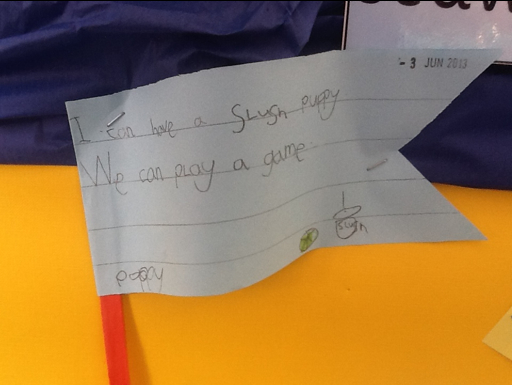 - 3 JUN 2013
I can have a Slush puppy
We can play a game.
Slush
poppy